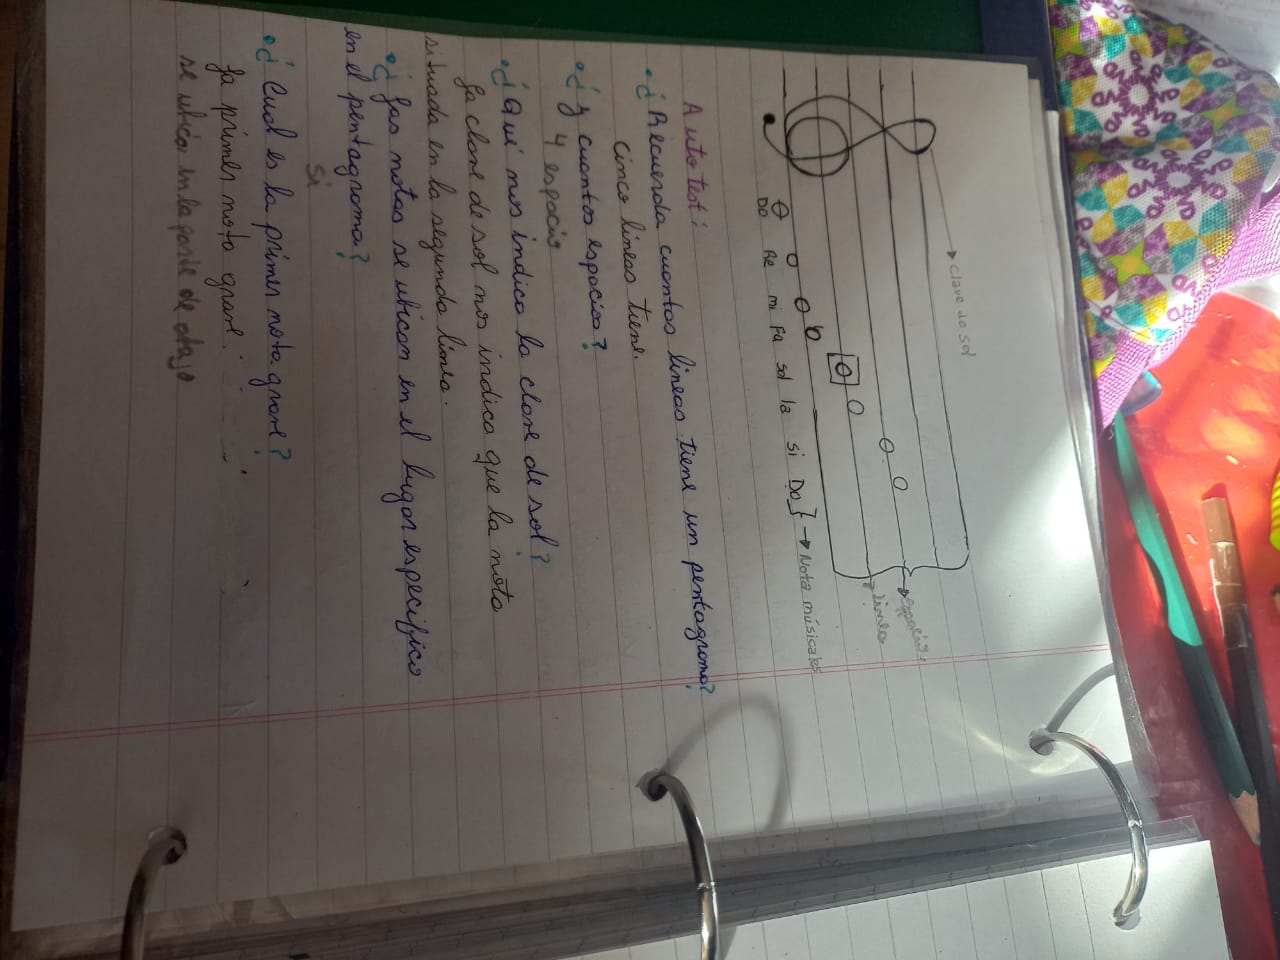 Clave de sol
espacios
linea
Do Re mi Fa sol la si Do } → Nota músicales
Auto test:
• ¿Recuerda cuantas lineas tiene un pentagrama?
Cinco lineas tiene.
• ¿y cuantos espacios?
4 espacio
• ¿Qué nos indica la clave de sol?
La clave de sol nos indica que la nota
situada en la segunda linea.
• ¿Las notas se ubican en el lugar especifico
en el pentagrama?
Si
• ¿Cual es la primer nota grave?
La primer nota grave.
se ubica en la parte de abajo